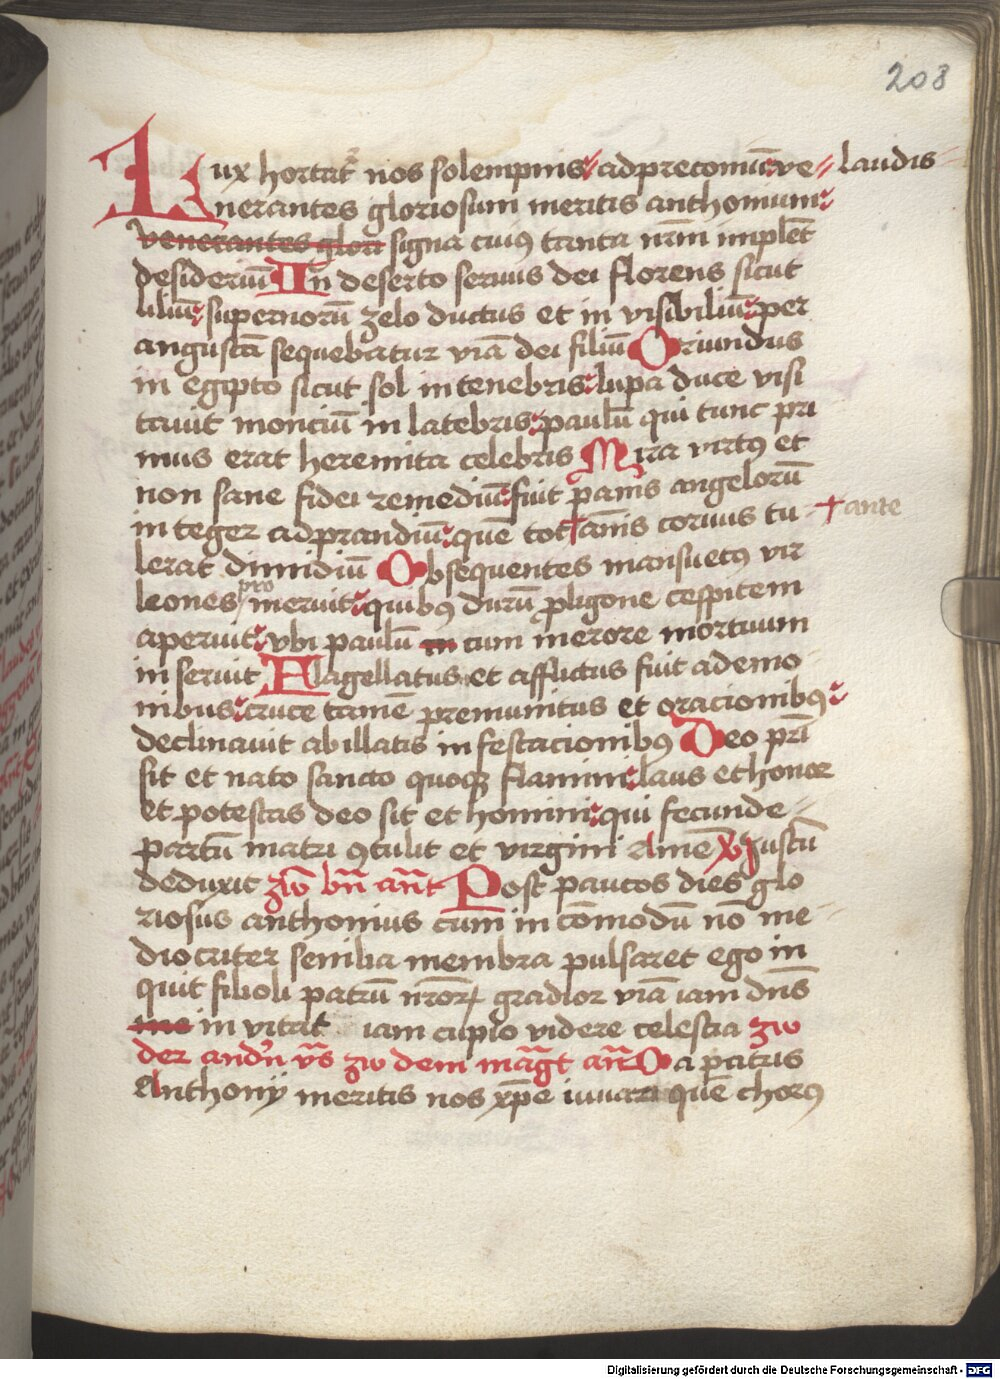 208
Lux hortat᷑ nos solempnis ad preconiū ve // laudis
nerantes gloriosum meritis anthonium
venerantes glori signa cuiꝰ tanta nr̄m implēt
desideriū In deserto seruus dei florens sicut
liliū supernorū zelo ductus et in visibiliū per
angustā sequebatur viā dei filiū Oriundus
in egipto sicut sol in tenebris lupa duce visi
tauit monciū in latebris paulū qui tunc pri
mus erat heremita celebris Mira virtꝰ et
non sane fidei remediū fuit panis angelorū
in teger ad prandiū quē tot † annis coruus tu † ante
lerat dimidiū Obsequentes mansuetꝰ vir
leones pro meruit quibꝰ durū ꝓ ligone cespitem
aperuit vbi paulū in cum merore mortuum
in seruit Flagellatus et afflictus fuit a demo
nibus cruce tamē premunitus et oracionibꝰ
declinauit ab illatis in festacionibꝰ Deo pr̄i
sit et nato sancto quoqꝫ flamini laus et honor
et potestas deo sit et homini qui fecunde
partū matri ꝯtulit et virgini Amē Iustū
deduxit zw bn̄ an̄t Post paucos dies glo
riosus anthonius cum in cōmodū nō me
diocriter senilia membra pulsaret ego in
quit filioli patrū nr̄orꝝ gradior viā iam dn̄s
me in vitat iam cupio videre celestia zw
der andn̄ vs̄ zw dem mag̅t an̄ O a patris
Anthonij meritis nos xp̄e iuuari quē chorꝰ
Digitalisierung gefördert durch die Deutsche Forschungsgemeinschaft - DFG